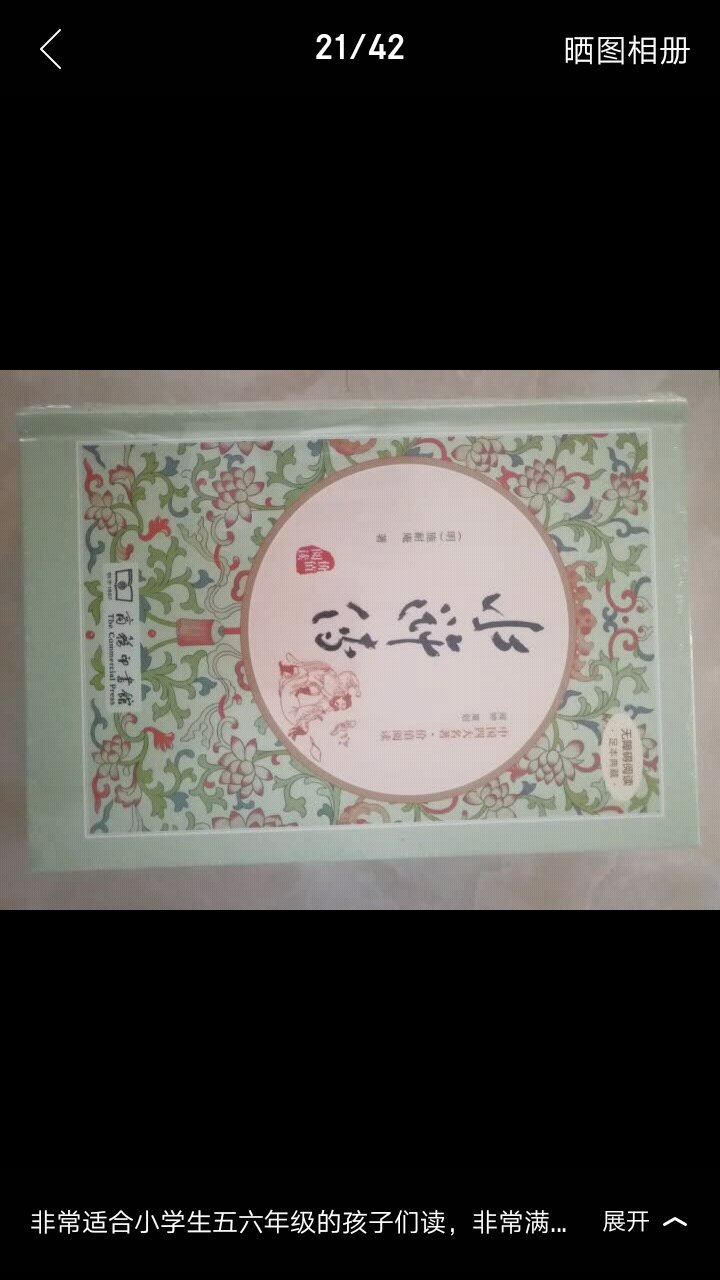 21/42
晒图相册
无障碍阅读
·足本典藏·
中国四大名著·价值阅读
水浒传
(明)施耐庵 著
价值
阅读
商务印书馆
The Commercial Press
非常适合小学生五六年级的孩子们读，非常满...
展开